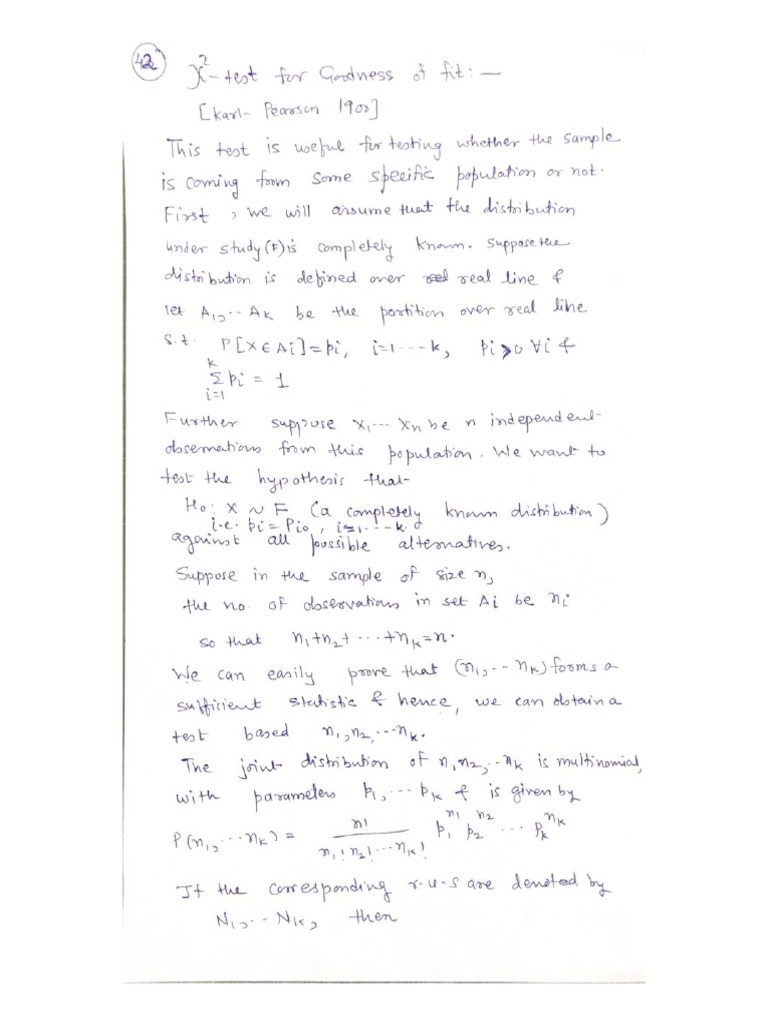 42
χ²-test for Goodness of fit:—
[Karl- Pearson 1900]
This test is useful for testing whether the sample
is coming from some specific population or not.
First, we will assume that the distribution
under study (F) is completely known. Suppose the
distribution is defined over real line &
let A₁,.. Aₖ be the partition over real line
s.t. P[X∈Ai]=pi, i=1---k, pi>0 ∀i &
k
Σ pi = 1
i=1
Further suppose x₁,--- xn be n independent
observations from this population. We want to
test the hypothesis that
H₀: X ~ F (a completely known distribution)
i.e. pi = pio, i=1---k.
against all possible alternatives.
Suppose in the sample of size n,
the no. of observations in set Ai be ni
so that n₁+n₂+ ... +nₖ=n.
We can easily prove that (n₁,-- nₖ) forms a
sufficient statistic & hence, we can obtain a
test based n₁,n₂,---nₖ.
The joint distribution of n₁n₂,-nₖ is multinomial,
with parameters p₁,--- pₖ & is given by
P(n₁,---nₖ) = n! / n₁! n₂!...nₖ! p₁^n₁ p₂^n₂ ... pₖ^nₖ
If the corresponding r.v.s are denoted by
N₁,--Nₖ, then